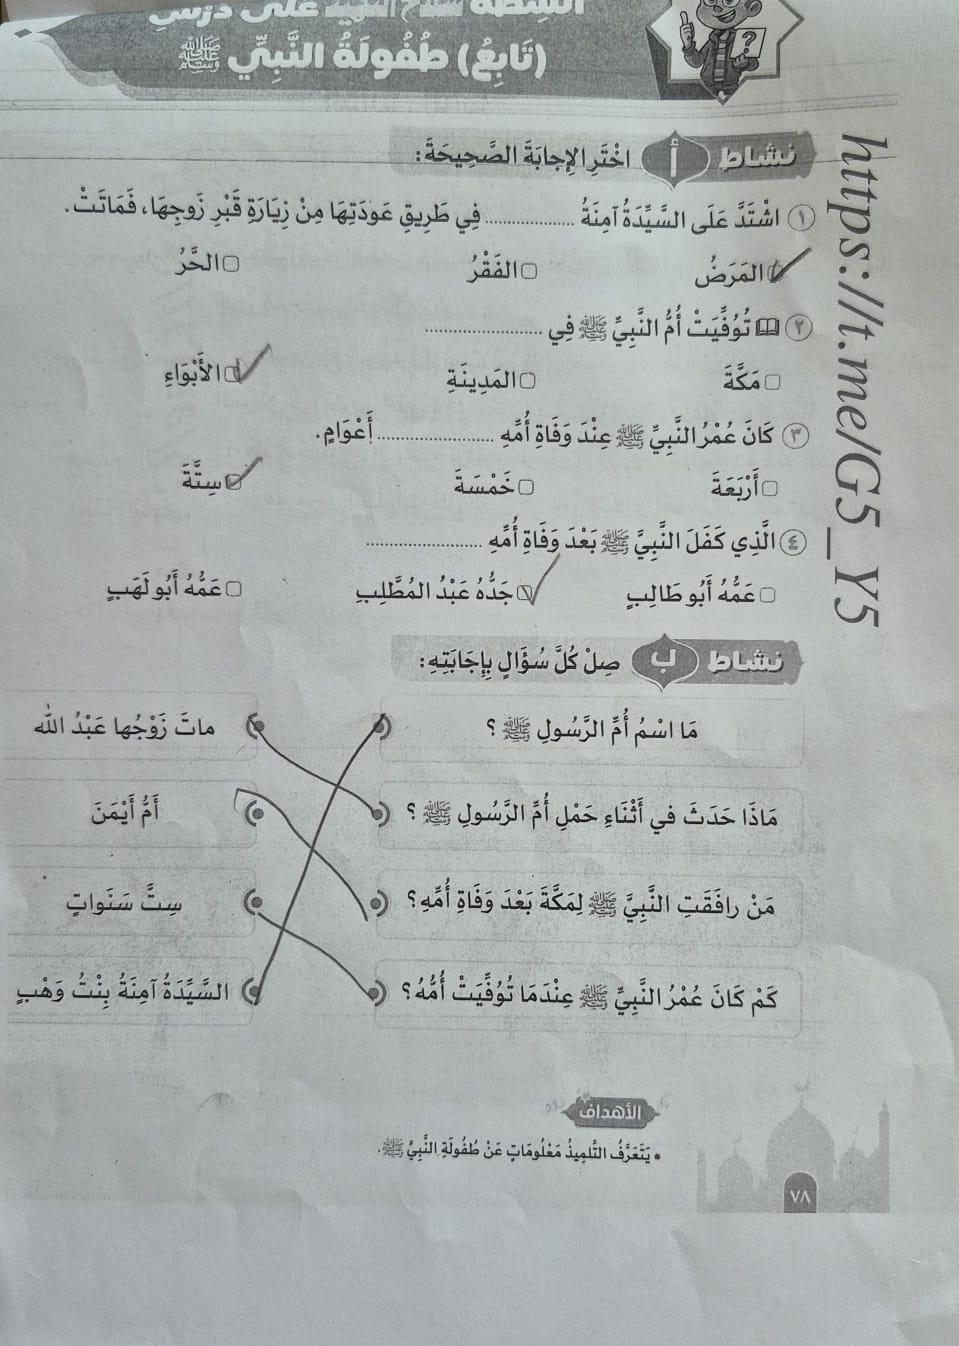 أنشطة سلاح التلميذ على درس
(تَابِعُ) طُفُولَةُ النَّبِيِّ ﷺ
نشاط أ اخْتَرِ الإِجابَةَ الصَّحِيحَةَ:
١ اشْتَدَّ عَلَى السَّيِّدَةُ آمِنَةُ .................. فِي طَرِيقِ عَودَتِهَا مِنْ زِيَارَةِ قَبْرِ زَوجِهَا، فَمَاتَتْ.
المَرَضُ الفَقْرُ الحَّرُ
٢ تُوُفِّيَتْ أُمُّ النَّبِيِّ ﷺ فِي .......................
مَكَّةَ المَدِينَةِ الأَبْوَاءِ
٣ كَانَ عُمْرُ النَّبِيِّ ﷺ عِنْدَ وَفَاةِ أُمِّهِ ....................... أَعْوَامٍ.
أَرْبَعَةَ خَمْسَةَ سِتَّةَ
٤ الَّذِي كَفَلَ النَّبِيَّ ﷺ بَعْدَ وَفَاةِ أُمِّهِ .......................
عَمُّهُ أَبُو طَالِبٍ جَدُّهُ عَبْدُ المُطَّلِبِ عَمُّهُ أَبُو لَهَبٍ
نشاط ب صِلْ كُلَّ سُؤَالٍ بِإِجَابَتِهِ:
مَا اسْمُ أُمِّ الرَّسُولِ ﷺ ؟ ماتَ زَوْجُها عَبْدُ الله
مَاذَا حَدَثَ في أَثْنَاءِ حَمْلِ أُمِّ الرَّسُولِ ﷺ ؟ أَمُّ أَيْمَنَ
مَنْ رافَقَتِ النَّبِيَّ ﷺ لِمَكَّةَ بَعْدَ وَفَاةِ أُمِّهِ؟ سِتَّ سَنَواتٍ
كَمْ كَانَ عُمْرُ النَّبِيِّ ﷺ عِنْدَمَا تُوُفِّيَتْ أُمُّهُ؟ السَّيِّدَةُ آمِنَةُ بِنْتُ وَهْبٍ
الأهداف
• يَتَعَرَّفُ التِّلمِيذُ مَعْلُومَاتٍ عَنْ طُفُولَةِ النَّبِيِّ ﷺ.
٧٨
https://t.me/G5_Y5